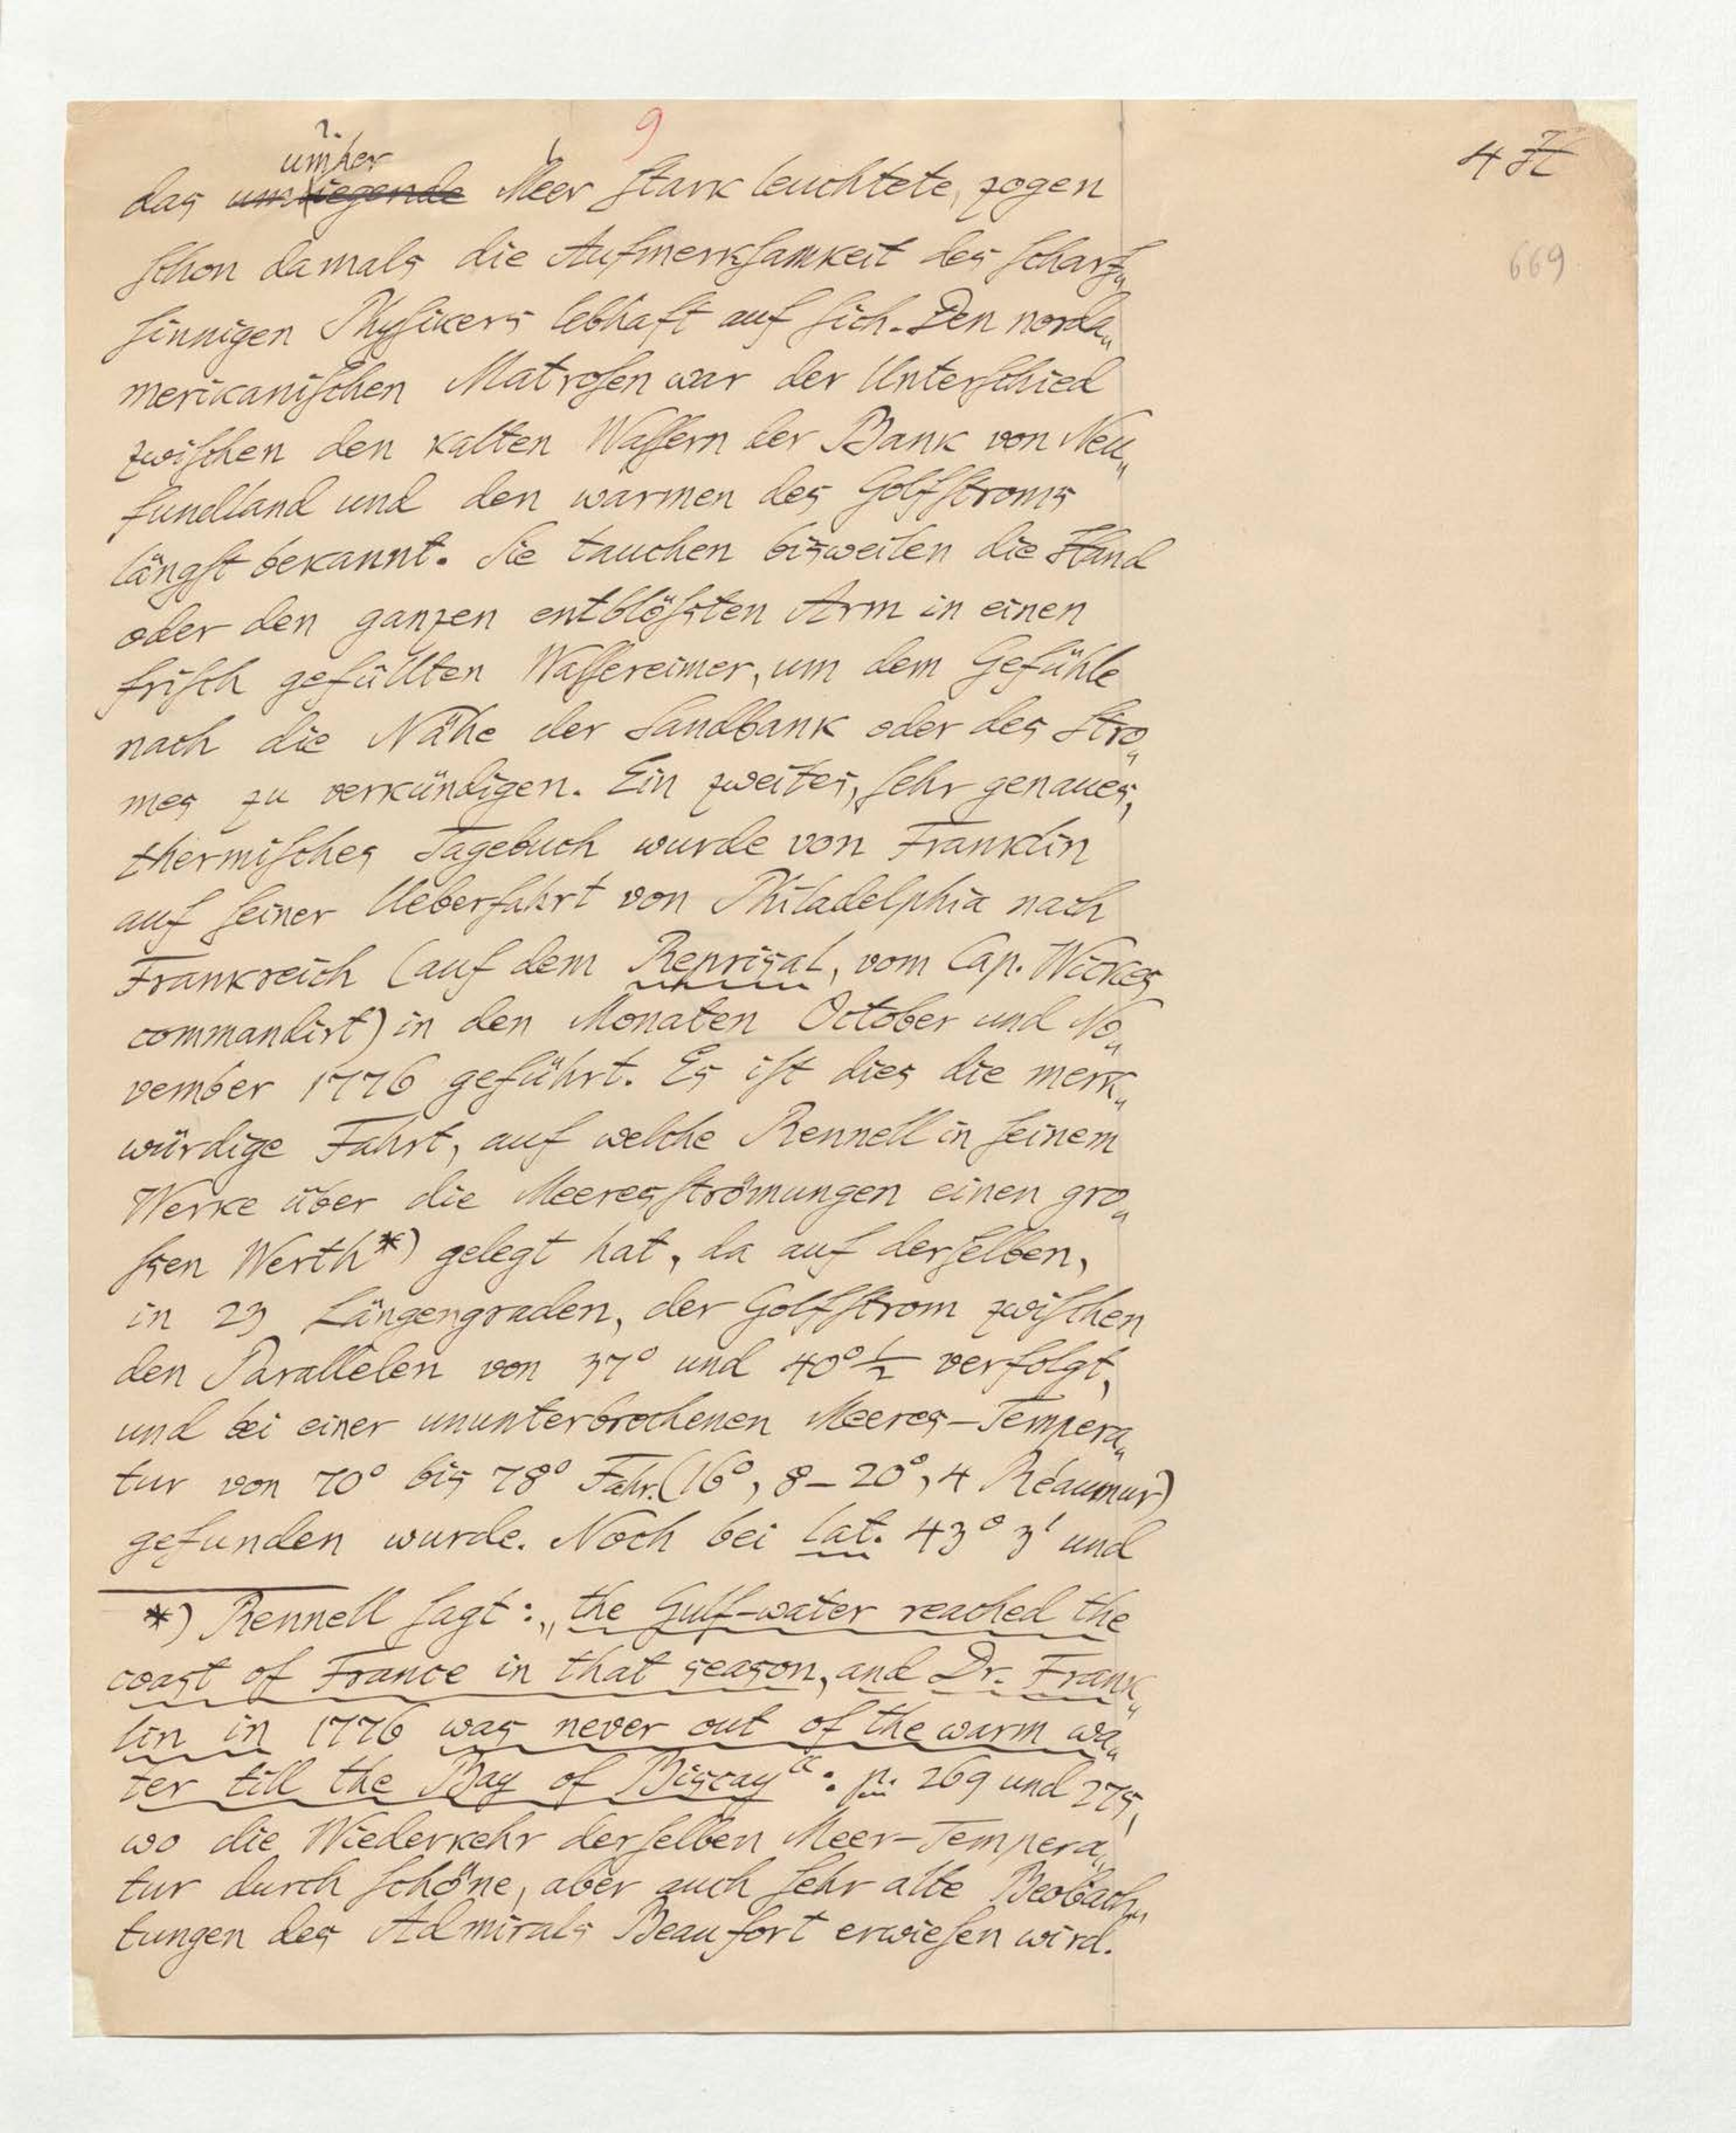 9
4 H
669
?
umher
das umliegende Meer stark leuchtete, zogen
schon damals die Aufmerksamkeit des scharf„
sinnigen Physikers lebhaft auf sich. Den norda„
merikanischen Matrosen war der Unterschied
zwischen den kalten Wassern der Bank von Neu„
fundland und den warmen des Golfstroms
längst bekannt. Sie tauchen bisweilen die Hand
oder den ganzen entblößten Arm in einen
frisch gefüllten Wassereimer, um dem Gefühle
nach die Nähe der Sandbank oder des Stro„
mes zu verkündigen. Ein zweites, sehr genaues,
thermisches Tagebuch wurde von Franklin
auf seiner Ueberfahrt von Philadelphia nach
Frankreich (auf dem Reprisal, vom Cap. Wickes
commandirt) in den Monaten October und No„
vember 1776 geführt. Es ist dies die merk„
würdige Fahrt, auf welche Rennell in seinem
Werke über die Meeresströmungen einen gro„
ßen Werth*) gelegt hat, da auf derselben,
in 23 Längengraden, der Golfstrom zwischen
den Parallelen von 37° und 40°½ verfolgt,
und bei einer ununterbrochenen Meeres-Tempera„
tur von 70° bis 78° Fahr. (16°, 8–20°, 4 Réaumur)
gefunden wurde. Noch bei lat. 43° 3' und
*) Rennell sagt: „the Gulf-water reached the
coast of France in that season, and Dr. Frank„
lin in 1776 was never out of the warm wa„
ter till the Bay of Biscay“: p. 269 und 275,
wo die Wiederkehr derselben Meer-Tempera„
tur durch schöne, aber auch sehr alte Beobach„
tungen des Admirals Beaufort erwiesen wird.